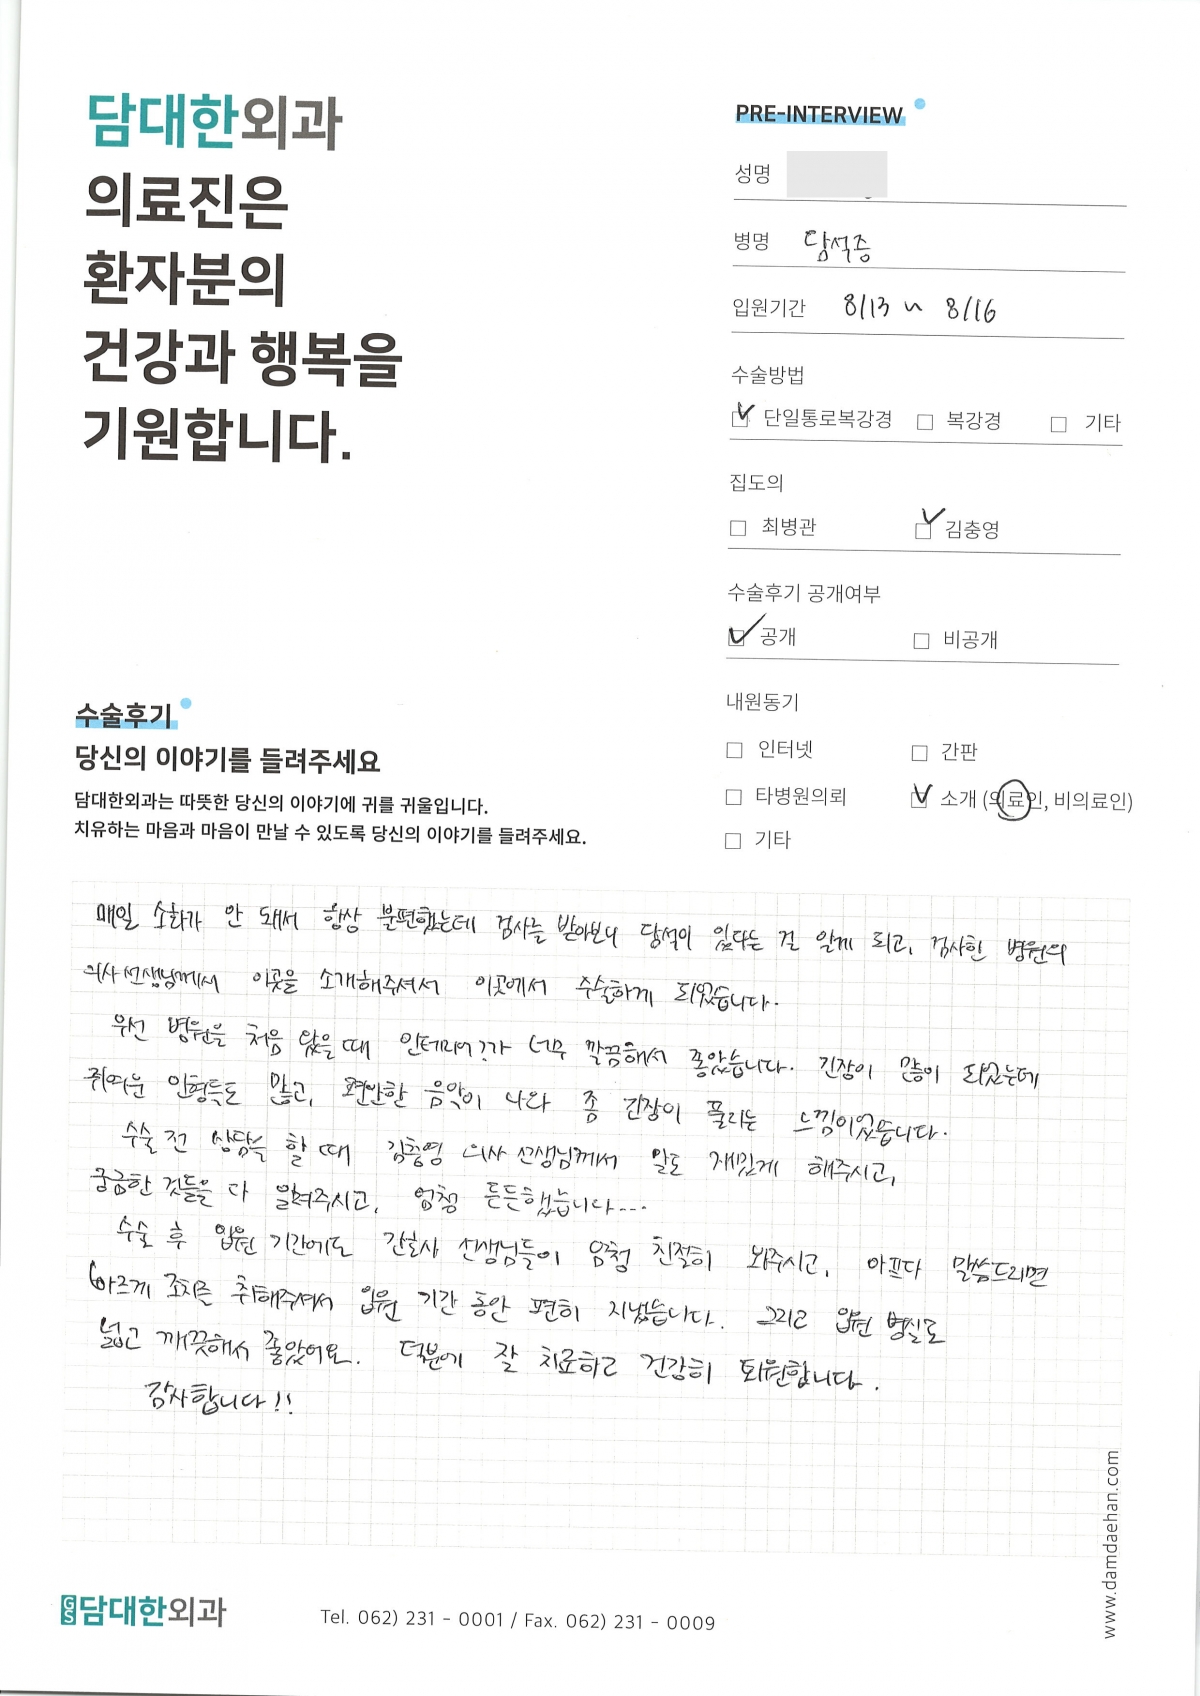 담대한외과
의료진은
환자분의
건강과 행복을
기원합니다.
PRE-INTERVIEW
성명
병명 담석증
입원기간 8/13 ~ 8/16
수술방법
☑ 단일통로복강경 □ 복강경 □ 기타
집도의
□ 최병관 ☑ 김충영
수술후기 공개여부
☑ 공개 □ 비공개
내원동기
□ 인터넷 □ 간판
□ 타병원의뢰 ☑ 소개 (의료인, 비의료인)
□ 기타
수술후기
당신의 이야기를 들려주세요
담대한외과는 따뜻한 당신의 이야기에 귀를 귀울입니다.
치유하는 마음과 마음이 만날 수 있도록 당신의 이야기를 들려주세요.
매일 소화가 안 돼서 항상 불편했는데 검사를 받아보니 담석이 있다는 걸 알게 되고, 검사한 병원의
의사선생님께서 이곳을 소개해주셔서 이곳에서 수술하게 되었습니다.
우선 병원을 처음 왔을 때 인테리어?가 너무 깔끔해서 좋았습니다. 긴장이 많이 되었는데
귀여운 인형들도 많고, 편안한 음악이 나와 좀 긴장이 풀리는 느낌이었습니다.
수술 전 상담을 할 때 김충영 의사 선생님께서 말도 재밌게 해주시고,
궁금한 것들을 다 알려주시고, 엄청 든든했습니다....
수술 후 입원 기간에도 간호사 선생님들이 엄청 친절히 봐주시고, 아프다 말씀드리면
빠르게 조치를 취해주셔서 입원 기간 동안 편히 지냈습니다. 그리고 입원 병실도
넓고 깨끗해서 좋았어요. 덕분에 잘 치료하고 건강히 퇴원합니다.
감사합니다!!
www.damdaehan.com
GS 담대한외과
Tel. 062) 231 - 0001 / Fax. 062) 231 - 0009